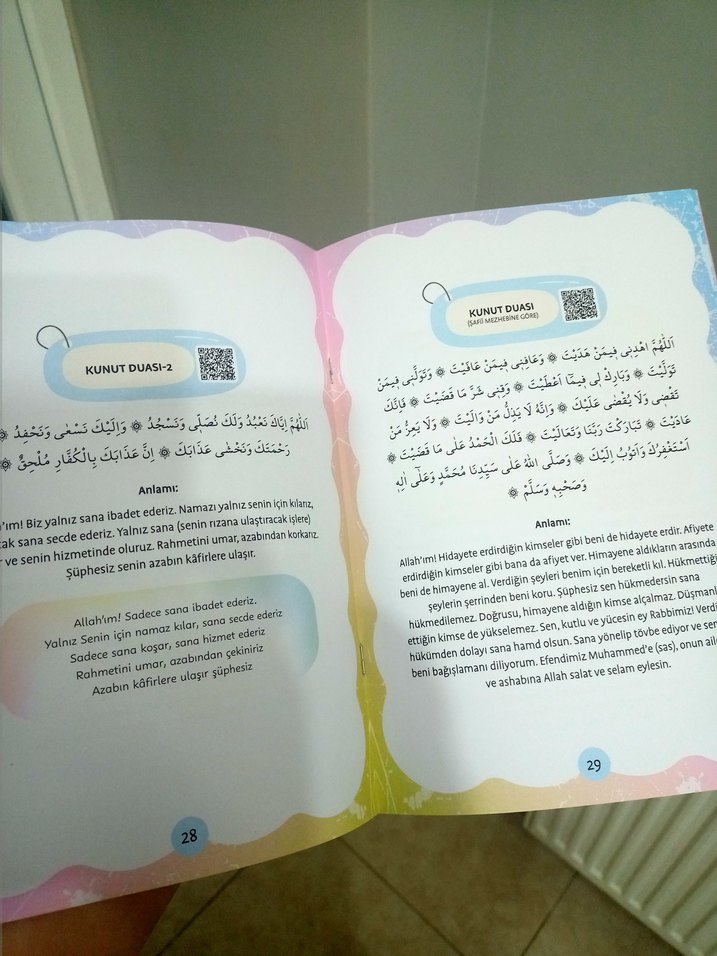 KUNUT DUASI-2
اَللّٰهُمَّ اِيَّاكَ نَعْبُدُ وَلَكَ نُصَلّ۪ي وَنَسْجُدُ ۞ وَاِلَيْكَ نَسْعٰى وَنَحْفِدُ ۞
رَحْمَتَكَ وَنَخْشٰى عَذَابَكَ ۞ اِنَّ عَذَابَكَ بِالْكُفَّارِ مُلْحِقٌ ۞
Anlamı:
Biz yalnız sana ibadet ederiz. Namazı yalnız senin için kılarız,
sana secde ederiz. Yalnız sana (senin rızana ulaştıracak işlere)
ve senin hizmetinde oluruz. Rahmetini umar, azabından korkarız.
Şüphesiz senin azabın kâfirlere ulaşır.
Allah'ım! Sadece sana ibadet ederiz.
Yalnız Senin için namaz kılar, sana secde ederiz
Sadece sana koşar, sana hizmet ederiz
Rahmetini umar, azabından çekiniriz
Azabın kâfirlere ulaşır şüphesiz
28
KUNUT DUASI
(ŞAFİİ MEZHEBİNE GÖRE)
اَللّٰهُمَّ اهْدِن۪ي ف۪يمَنْ هَدَيْتَ ۞ وَعَافِن۪ي ف۪يمَنْ عَافَيْتَ ۞ وَتَوَلَّن۪ي ف۪يمَنْ
تَوَلَّيْتَ ۞ وَبَارِكْ ل۪ي ف۪يمَٓا اَعْطَيْتَ ۞ وَقِن۪ي شَرَّ مَا قَضَيْتَ ۞ فَاِنَّكَ
تَقْض۪ي وَلَا يُقْضٰى عَلَيْكَ ۞ وَاِنَّهُ لَا يَذِلُّ مَنْ وَالَيْتَ ۞ وَلَا يَعِزُّ مَنْ
عَادَيْتَ ۞ تَبَارَكْتَ رَبَّنَا وَتَعَالَيْتَ ۞ فَلَكَ الْحَمْدُ عَلٰى مَا قَضَيْتَ ۞
اَسْتَغْفِرُكَ وَاَتُوبُ اِلَيْكَ ۞ وَصَلَّى اللهُ عَلٰى سَيِّدِنَا مُحَمَّدٍ وَعَلٰٓى اٰلِه۪
وَصَحْبِه۪ وَسَلَّمَ ۞
Anlamı:
Allah'ım! Hidayete erdirdiğin kimseler gibi beni de hidayete erdir. Afiyete
erdirdiğin kimseler gibi bana da afiyet ver. Himayene aldıkların arasında
beni de himayene al. Verdiğin şeyleri benim için bereketli kıl. Hükmettiğin
şeylerin şerrinden beni koru. Şüphesiz sen hükmedersin sana
hükmedilemez. Doğrusu, himayene aldığın kimse alçalmaz.
ettiğin kimse de yükselemez. Sen, kutlu ve yücesin ey Rabbimiz!
hükümden dolayı sana hamd olsun. Sana yönelip tövbe ediyor ve
beni bağışlamanı diliyorum. Efendimiz Muhammed'e (sas), onun
ve ashabına Allah salat ve selam eylesin.
29